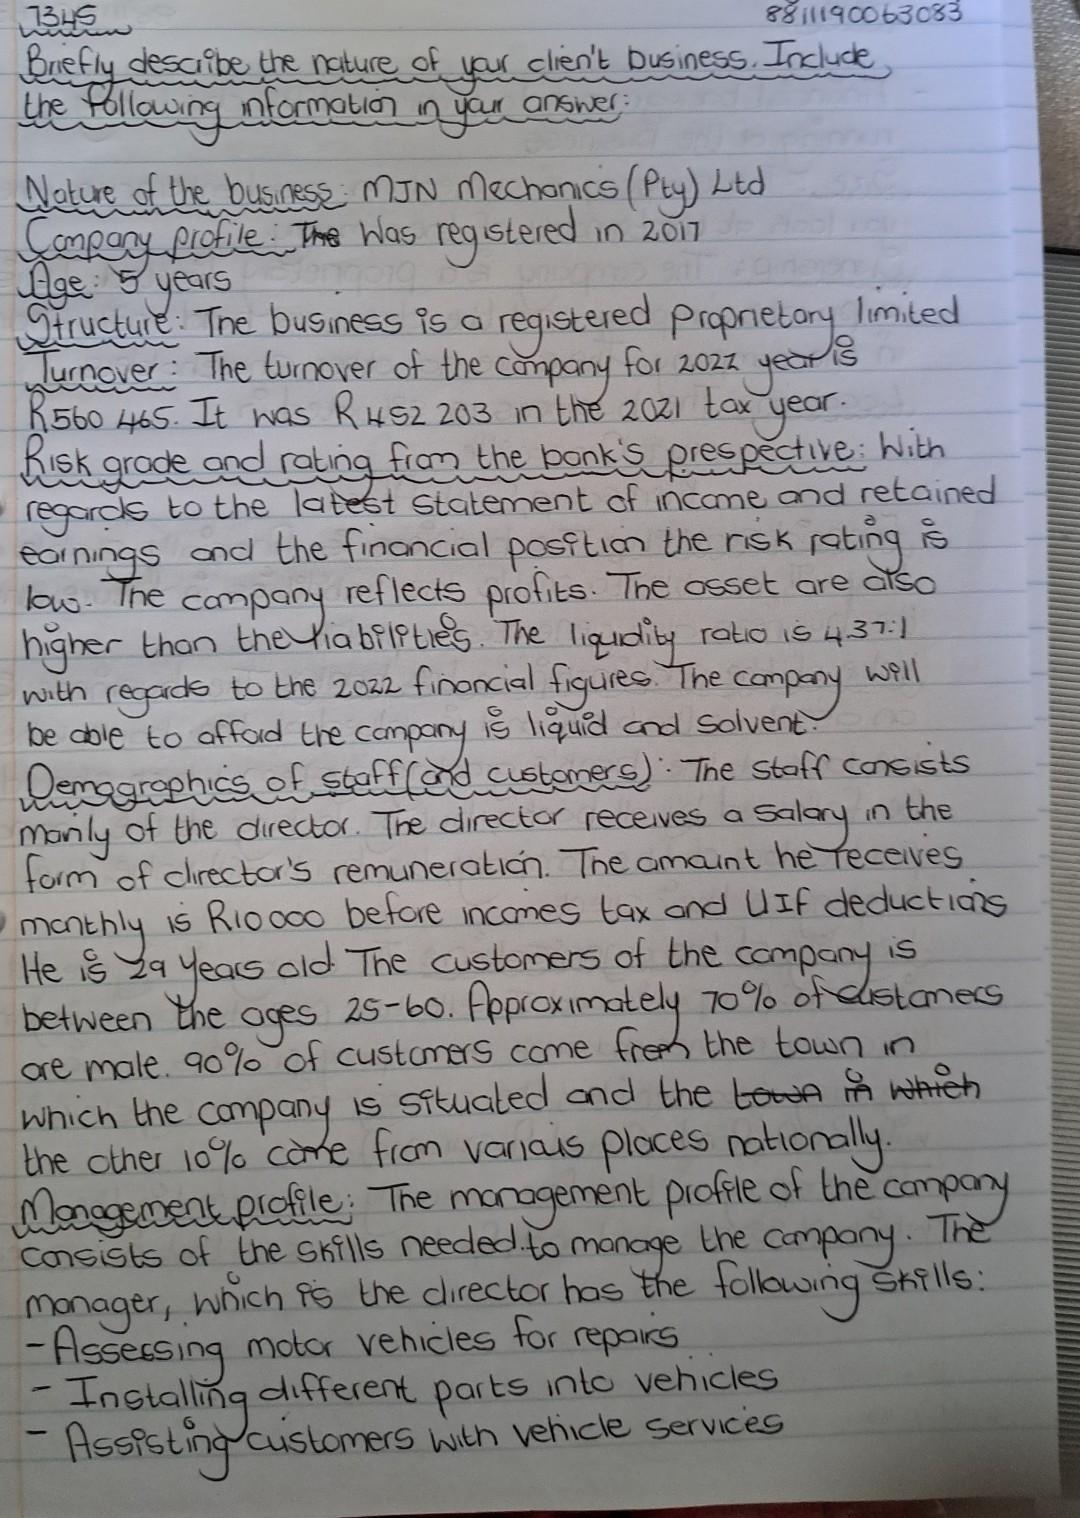 7345 8811190063083
Briefly describe the nature of your clien't business. Include
the following information in your answer:
Nature of the business: MJN Mechanics (Pty) Ltd
Company profile: The Was registered in 2017
Age: 5 years
Structure: The business is a registered Proprietary limited
Turnover: The turnover of the company for 2022 year is
R560 465. It was R452 203 in the 2021 tax year.
Risk grade and rating from the bank's prespective: With
regards to the latest statement of income and retained
earnings and the financial position the risk rating is
low. The company reflects profits. The asset are also
higher than the liabilities. The liquidity ratio is 4.37:1
with regards to the 2022 financial figures. The company will
be able to afford the company is liquid and solvent.
Demographics of staff (and customers): The staff consists
manly of the director. The director receives a salary in the
form of director's remuneration. The amount he receives
monthly is R10000 before incomes tax and UIF deductions
He is 29 years old. The customers of the company is
between the ages 25-60. Approximately 70% of customers
are male. 90% of customers come from the town in
which the company is situated and the town in which
the other 10% come from various places nationally.
Management profile: The management profile of the company
consists of the skills needed to manage the company. The
manager, which is the director has the following skills:
- Assessing motor vehicles for repairs
- Installing different parts into vehicles
- Assisting customers with vehicle services